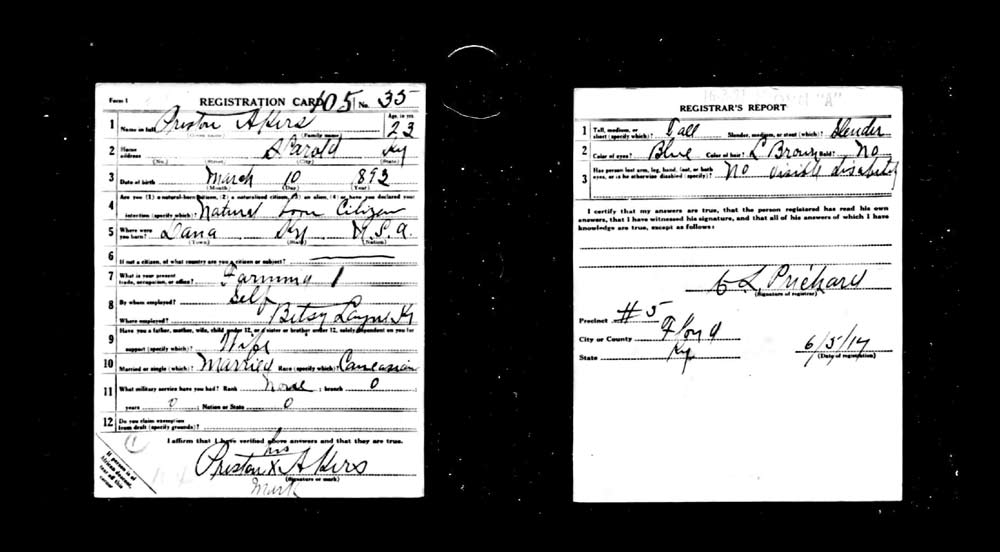 Form 1 REGISTRATION CARD 105 No. 35
1 Name in full Preston Akers Age, in yrs. 23
(Given name) (Family name)
2 Home address Ky
(No.) (Street) (City) (State)
3 Date of birth March 10 1893
(Month) (Day) (Year)
4 Are you (1) a natural-born citizen, (2) a naturalized citizen, (3) an alien, (4) or have you declared your
intention (specify which)? Natural born Citizen
5 Where were you born? Dana Ky U.S.A.
(Town) (State) (Nation)
6 If not a citizen, of what country are you a citizen or subject?
7 What is your present trade, occupation, or office? Farming 1
8 By whom employed? Self
Where employed? Betsy Layne Ky
9 Have you a father, mother, wife, child under 12, or a sister or brother under 12, solely dependent on you for
support (specify which)? Wife
10 Married or single (which)? Married Race (specify which)? Caucasian
11 What military service have you had? Rank None ; branch 0 ;
years 0 ; Nation or State 0
12 Do you claim exemption from draft (specify grounds)?
I affirm that I have verified above answers and that they are true.
his
Preston X Akers
(Signature or mark)
Mark
If person is of African descent, tear off this corner
REGISTRAR'S REPORT
1 Tall, medium, or short (specify which)? Tall Slender, medium, or stout (which)? Slender
2 Color of eyes? Blue Color of hair? L Brown Bald? No
3 Has person lost arm, leg, hand, foot, or both eyes, or is he otherwise disabled (specify)? No visible disability
I certify that my answers are true, that the person registered has read his own
answers, that I have witnessed his signature, and that all of his answers of which I have
knowledge are true, except as follows:
Prichard
(Signature of registrar)
Precinct #5
City or County Floyd
State Ky
6/5/17
(Date of registration)